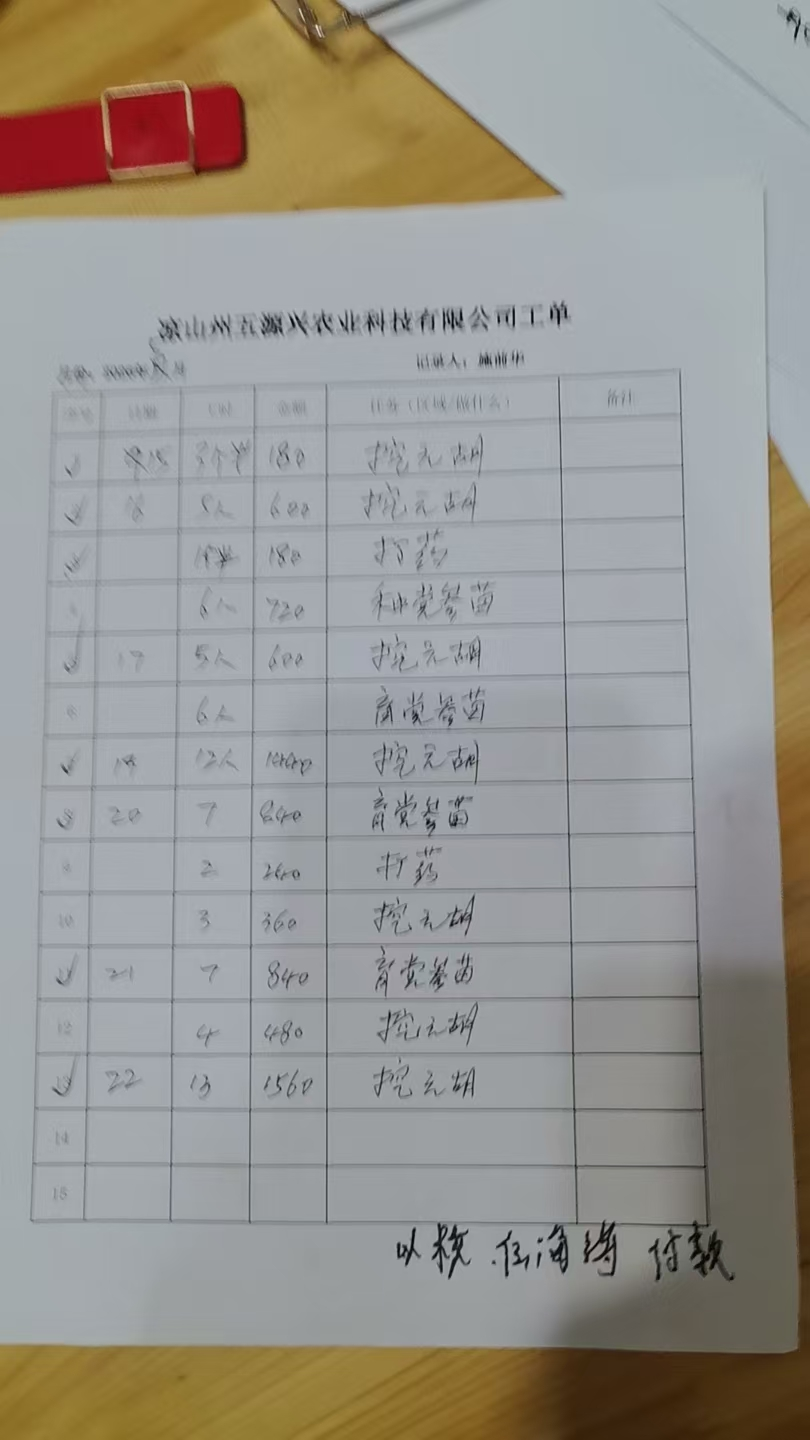 凉山州五源兴农业科技有限公司工单
记录人：施前华
序号 日期 工时 金额 任务（区域/做什么） 备注
15 180 挖元胡
16 5人 600 挖元胡
180 打药
6人 720 种党参苗
17 5人 600 挖元胡
6 6人 育党参苗
19 12人 1440 挖元胡
8 20 7 840 育党参苗
9 2 240 打药
10 3 360 挖元胡
21 7 840 育党参苗
12 4 480 挖元胡
13 22 13 1560 挖元胡
14
15
以核 付款